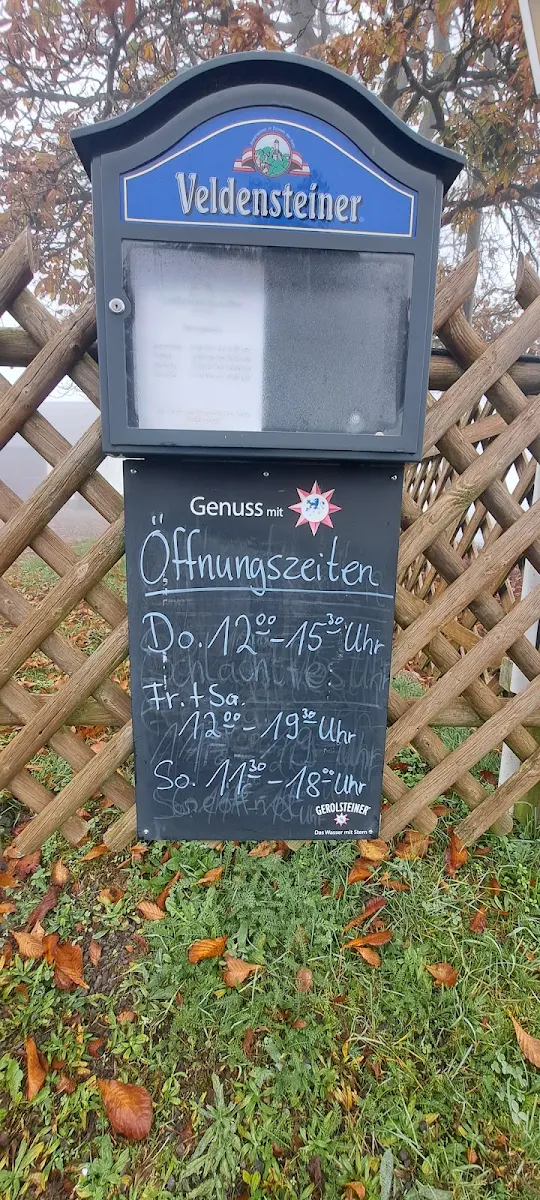 Veldensteiner
Genuss mit
Öffnungszeiten
Do. 12⁰⁰ - 15³⁰ Uhr
Fr. + Sa.
12⁰⁰ - 19³⁰ Uhr
So. 11³⁰ - 18⁰⁰ Uhr
GEROLSTEINER
Das Wasser mit Stern